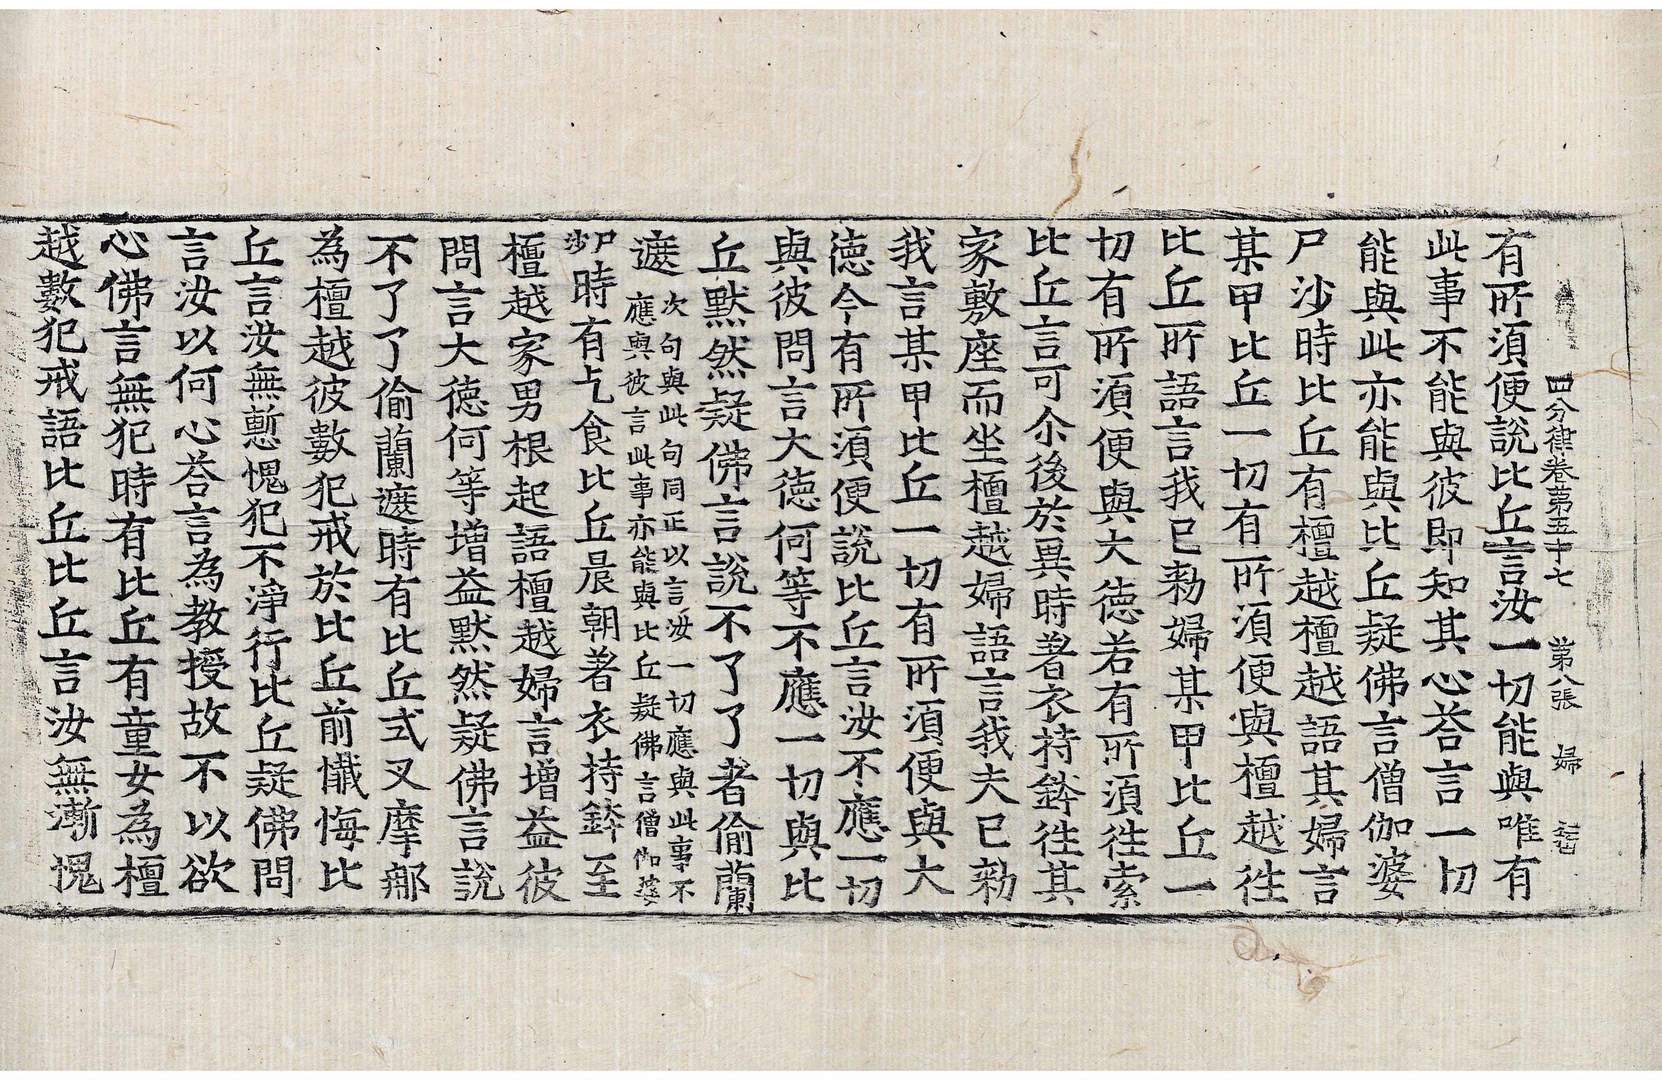 四分律卷第五十七 第八張 婦
有所須便說比丘言汝一切能與唯有
此事不能與彼即知其心荅言一切
能與此亦能與比丘疑佛言僧伽婆
尸沙時比丘有檀越檀越語其婦言
某甲比丘一切有所須便與檀越往
比丘所語言我已勑婦某甲比丘一
切有所須便與大德若有所須往索
比丘言可尒後於異時著衣持鉢往其
家敷座而坐檀越婦語言我夫已勑
我言某甲比丘一切有所須便與大
德今有所須便說比丘言汝不應一切
與彼問言大德何等不應一切與比
丘默然疑佛言說不了了者偷蘭
遮次句與此句同正以言汝一切應與此事不
應與彼言此事亦能與比丘疑佛言僧伽婆
尸沙時有乞食比丘晨朝著衣持鉢至
檀越家男根起語檀越婦言增益彼
問言大德何等增益默然疑佛言說
不了了偷蘭遮時有比丘式叉摩那
為檀越彼數犯戒於比丘前懺悔比
丘言汝無慙愧犯不淨行比丘疑佛問
言汝以何心荅言為教授故不以欲
心佛言無犯時有比丘有童女為檀
越數犯戒語比丘比丘言汝無慚愧